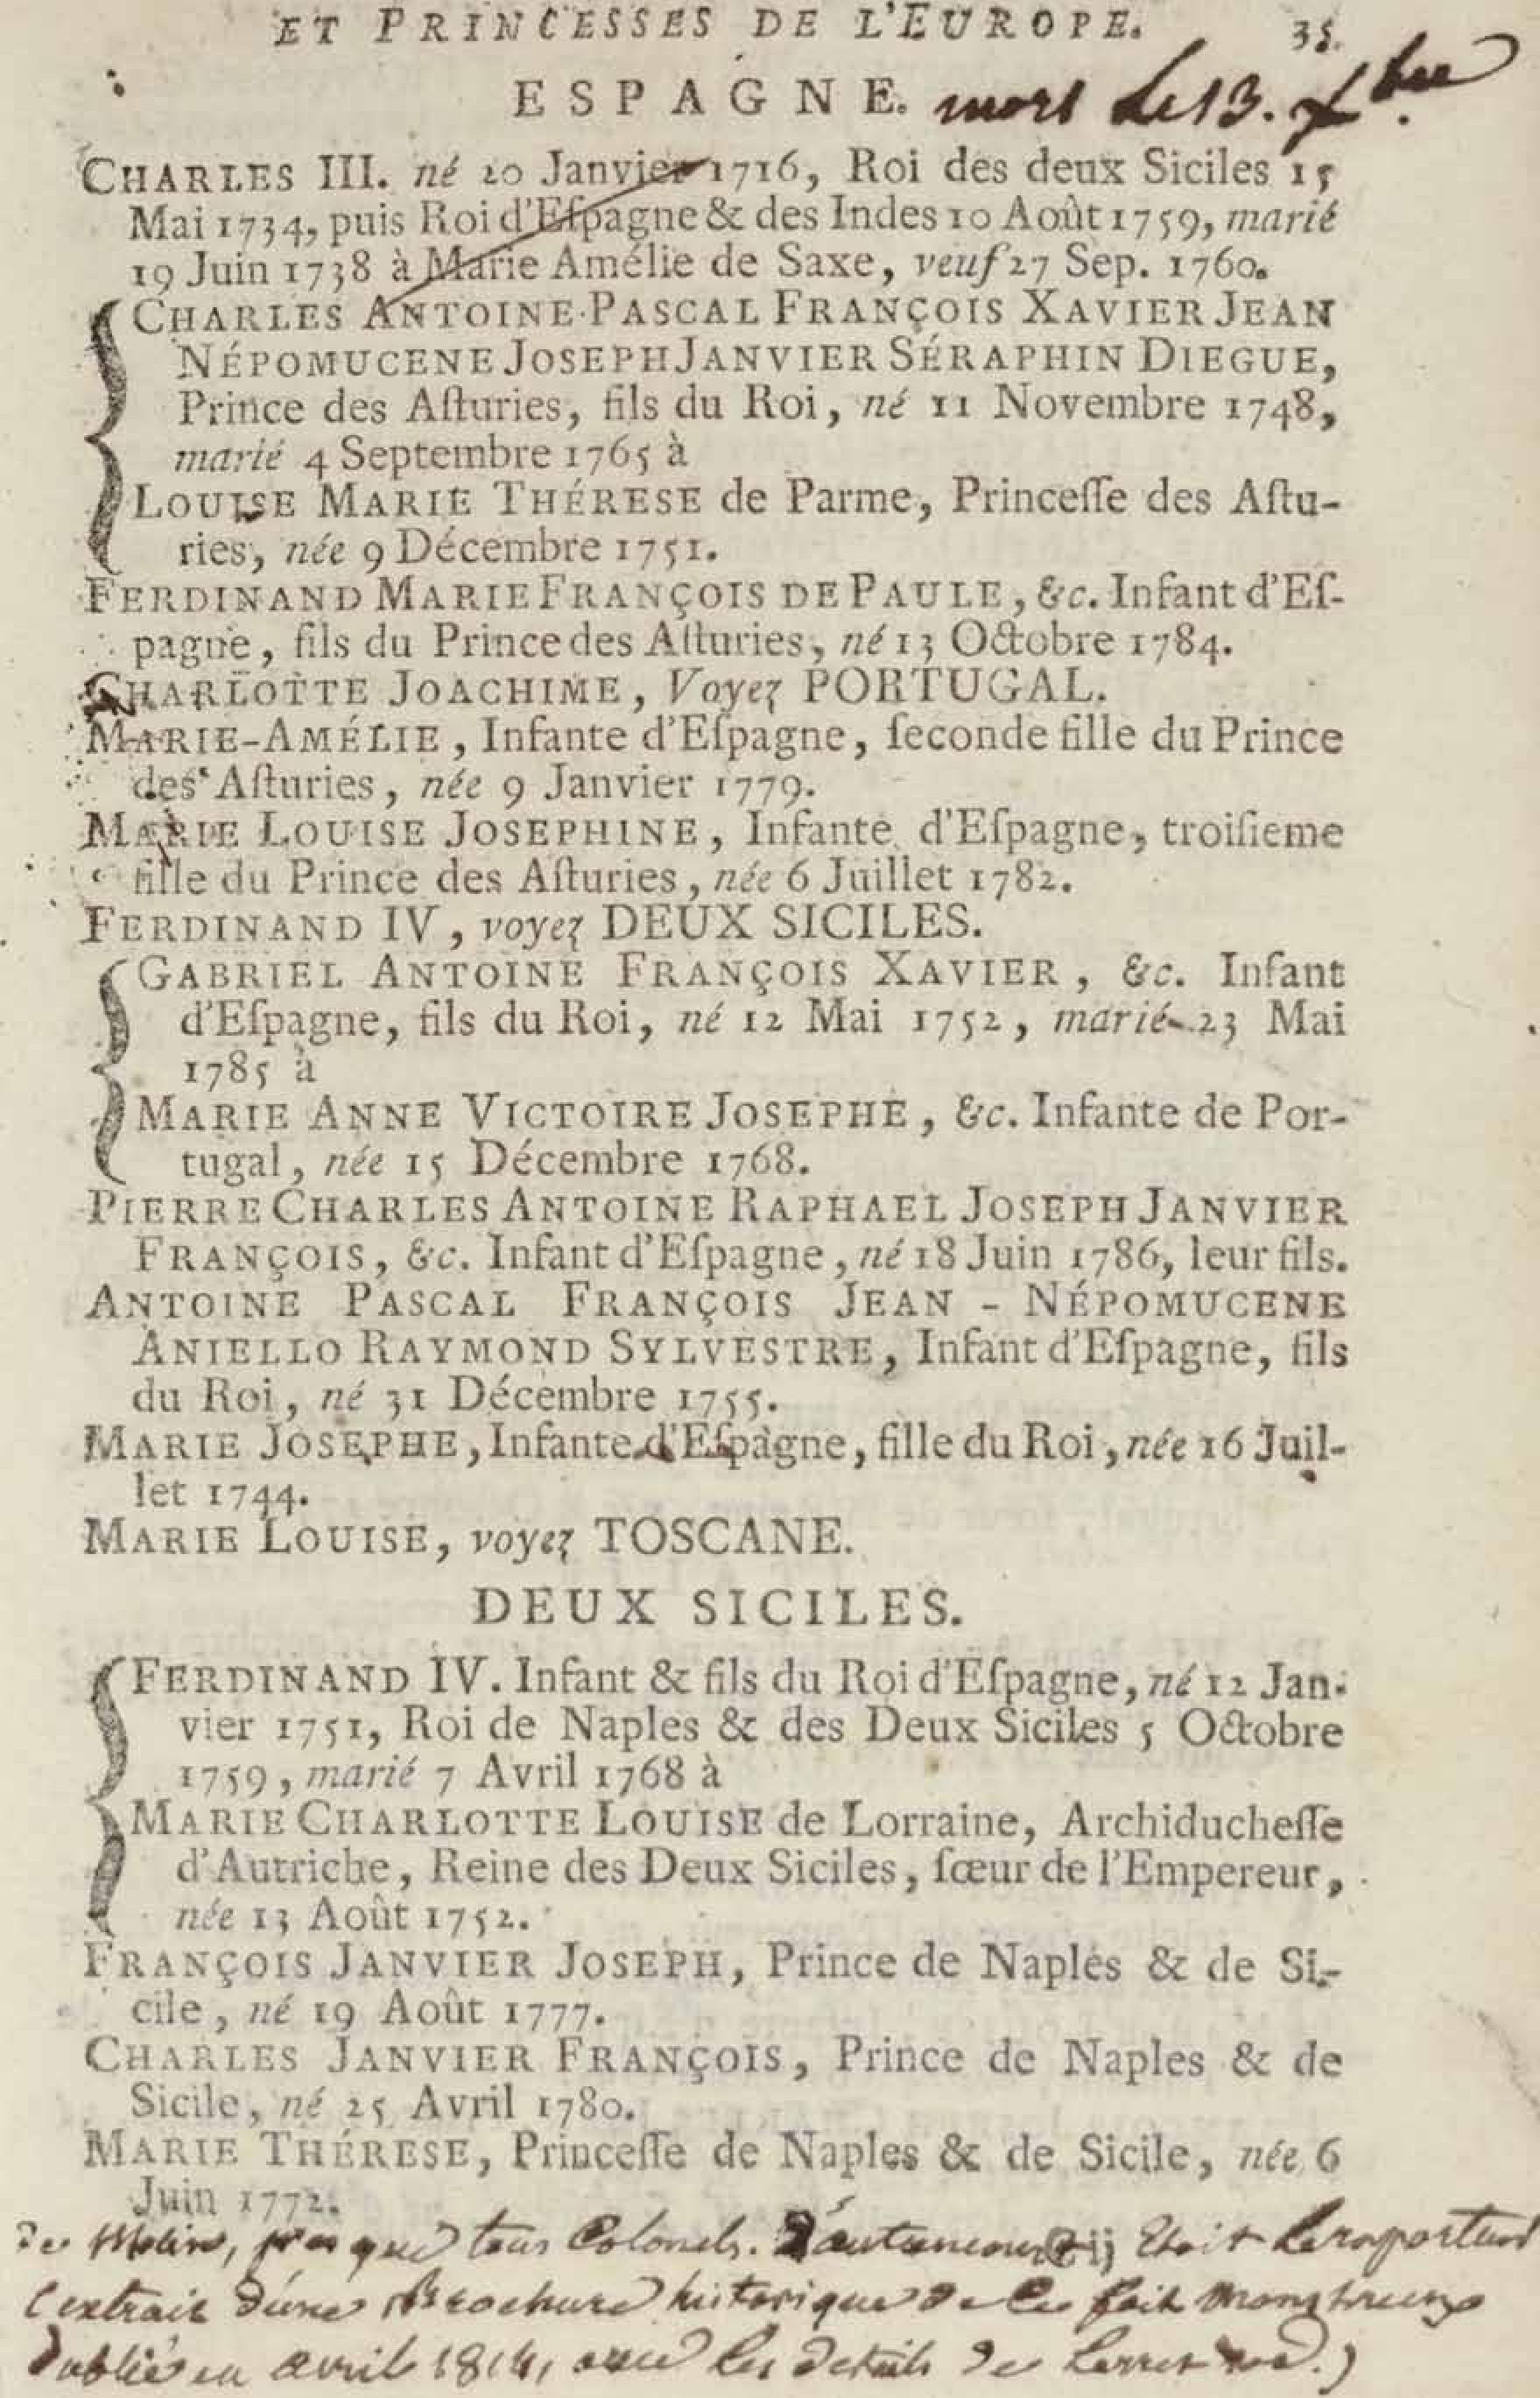 ET PRINCESSES DE L'EUROPE. 35.
ESPAGNE. mort le 13. Xbre.
CHARLES III. né 20 Janvier 1716, Roi des deux Siciles 15
Mai 1734, puis Roi d'Eſpagne & des Indes 10 Août 1759, marié
19 Juin 1738 à Marie Amélie de Saxe, veuf 27 Sep. 1760.
CHARLES ANTOINE PASCAL FRANÇOIS XAVIER JEAN
NÉPOMUCENE JOSEPH JANVIER SÉRAPHIN DIEGUE,
Prince des Aſturies, fils du Roi, né 11 Novembre 1748,
marié 4 Septembre 1765 à
LOUISE MARIE THÉRESE de Parme, Princeſſe des Aſtu-
ries, née 9 Décembre 1751.
FERDINAND MARIE FRANÇOIS DE PAULE, &c. Infant d'Eſ-
pagne, fils du Prince des Aſturies, né 13 Octobre 1784.
CHARLOTTE JOACHIME, Voyez PORTUGAL.
MARIE-AMÉLIE, Infante d'Eſpagne, ſeconde fille du Prince
des Aſturies, née 9 Janvier 1779.
MARIE LOUISE JOSEPHINE, Infante d'Eſpagne, troiſieme
fille du Prince des Aſturies, née 6 Juillet 1782.
FERDINAND IV, voyez DEUX SICILES.
GABRIEL ANTOINE FRANÇOIS XAVIER, &c. Infant
d'Eſpagne, fils du Roi, né 12 Mai 1752, marié 23 Mai
1785 à
MARIE ANNE VICTOIRE JOSEPHE, &c. Infante de Por-
tugal, née 15 Décembre 1768.
PIERRE CHARLES ANTOINE RAPHAEL JOSEPH JANVIER
FRANÇOIS, &c. Infant d'Eſpagne, né 18 Juin 1786, leur fils.
ANTOINE PASCAL FRANÇOIS JEAN - NÉPOMUCENE
ANIELLO RAYMOND SYLVESTRE, Infant d'Eſpagne, fils
du Roi, né 31 Décembre 1755.
MARIE JOSEPHE, Infante d'Eſpagne, fille du Roi, née 16 Juil-
let 1744.
MARIE LOUISE, voyez TOSCANE.
DEUX SICILES.
FERDINAND IV. Infant & fils du Roi d'Eſpagne, né 12 Jan-
vier 1751, Roi de Naples & des Deux Siciles 5 Octobre
1759, marié 7 Avril 1768 à
MARIE CHARLOTTE LOUISE de Lorraine, Archiducheſſe
d'Autriche, Reine des Deux Siciles, ſœur de l'Empereur,
née 13 Août 1752.
FRANÇOIS JANVIER JOSEPH, Prince de Naples & de Si-
cile, né 19 Août 1777.
CHARLES JANVIER FRANÇOIS, Prince de Naples & de
Sicile, né 25 Avril 1780.
MARIE THÉRESE, Princeſſe de Naples & de Sicile, née 6
Juin 1772.
presque tous Colonels. Etoit le raporteur
(extrait d'une Brochure historique de ce fait monstrueux
publié en avril 1814, avec les details de